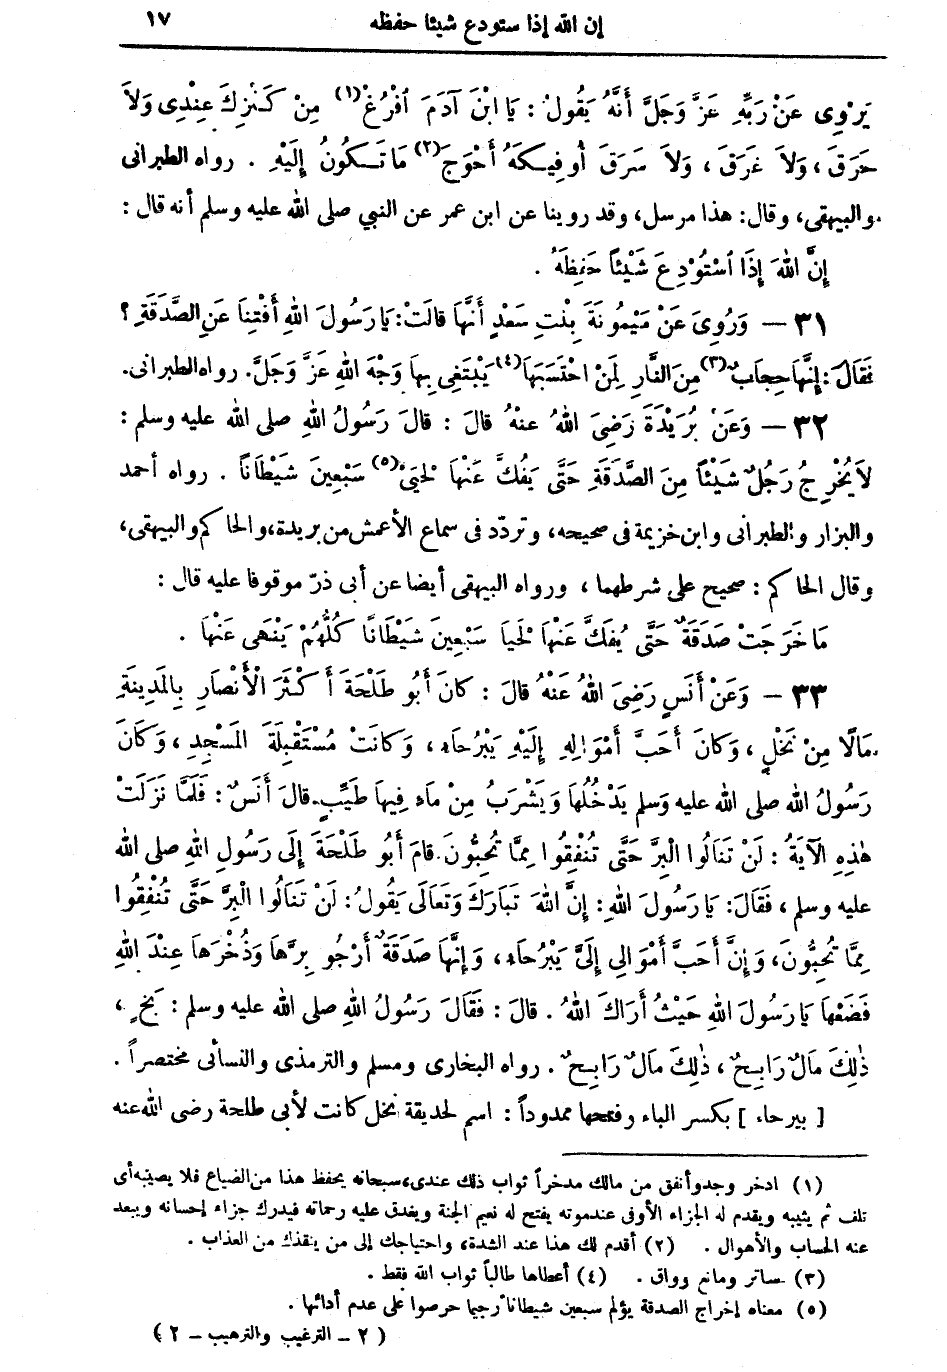 إن الله إذا ستودع شيئا حفظه ١٧
يَرْوِى عَنْ رَبِّهِ عَزَّ وَجَلَّ أَنَّهُ يَقُولُ : يَا ابْنَ آدَمَ افْرُغْ(١) مِنْ كَنْزِكَ عِنْدِى وَلاَ
حَرَقَ ، وَلاَ غَرَقَ ، وَلاَ سَرَقَ أُوفِيكَهُ أَحْوَجَ(٢) مَا تَكُونُ إِلَيْهِ . رواه الطبرانى
والبيهقى، وقال: هذا مرسل، وقد روينا عن ابن عمر عن النبي صلى الله عليه وسلم أنه قال :
إِنَّ اللهَ إِذَا اسْتُوْدِعَ شَيْئاً حَفِظَهُ .
٣١ — وَرُوِىَ عَنْ مَيْمُونَةَ بِنْتِ سَعْدٍ أَنَّهَا قَالَتْ: يَا رَسُولَ اللهِ أَفْتِنَا عَنِ الصَّدَقَةِ ؟
فَقَالَ: إِنَّهَا حِجَابٌ(٣) مِنَ النَّارِ لِمَنْ احْتَسَبَهَا(٤) يَبْتَغِى بِهَا وَجْهَ اللهِ عَزَّ وَجَلَّ. رواه الطبرانى.
٣٢ — وَعَنْ بُرَيْدَةَ رَضِىَ اللهُ عنْهُ قَالَ : قَالَ رَسُولُ اللهِ صلى الله عليه وسلم :
لاَ يُخْرِجُ رَجُلٌ شَيْئاً مِنَ الصَّدَقَةِ حَتَّى يَفُكَّ عَنْهَا لَحْيَىْ(٥) سَبْعِينَ شَيْطَاناً . رواه أحمد
والبزار والطبرانى وابن خزيمة فى صحيحه، وتردّد فى سماع الأعمش من بريدة، والحاكم والبيهقى،
وقال الحاكم : صحيح على شرطهما ، ورواه البيهقى أيضا عن أبى ذرّ موقوفا عليه قال :
مَا خَرَجَتْ صَدَقَةٌ حَتَّى يُفَكَّ عَنْهَا لَحْيَا سَبْعِينَ شَيْطَانًا كُلُّهُمْ يَنْهَى عَنْهَا .
٣٣ — وَعَنْ أَنَسٍ رَضِىَ اللهُ عَنْهُ قَالَ : كَانَ أَبُو طَلْحَةَ أَكْثَرَ الْأَنْصَارِ بِالْمَدِينَةِ
مَالًا مِنْ نَخْلٍ ، وَكَانَ أَحَبَّ أَمْوَالِهِ إِلَيْهِ بَيْرُحَاءِ ، وَكَانَتْ مُسْتَقْبِلَةَ الْمَسْجِدِ ، وَكَانَ
رَسُولُ الله صلى الله عليه وسلم يَدْخُلُهَا وَيَشْرَبُ مِنْ مَاءٍ فِيهَا طَيِّبٍ. قَالَ أَنَسٌ : فَلَمَّا نَزَلَتْ
هٰذِهِ الْآيَةُ : لَنْ تَنَالُوا الْبِرَّ حَتَّى تُنْفِقُوا مِمَّا تُحِبُّونَ. قَامَ أَبُو طَلْحَةَ إِلَى رَسُولِ اللهِ صلى الله
عليه وسلم ، فَقَالَ: يَا رَسُولَ اللهِ : إِنَّ اللهَ تَبَارَكَ وَتَعَالَى يَقُولُ: لَنْ تَنَالُوا الْبِرَّ حَتَّى تُنْفِقُوا
مِمَّا تُحِبُّونَ، وَإِنَّ أَحَبَّ أَمْوَالِى إِلَىَّ بَيْرُحَاءِ ، وَإِنَّهَا صَدَقَةٌ أَرْجُو بِرَّهَا وَذُخْرَهَا عِنْدَ اللهِ
فَضَعْهَا يَا رَسُولَ اللهِ حَيْثُ أَرَاكَ اللهُ . قَالَ : فَقَالَ رَسُولُ اللهِ صلى الله عليه وسلم : بَخٍ ،
ذٰلِكَ مَالٌ رَابِحٌ ، ذٰلِكَ مَالٌ رَابِحٌ . رواه البخارى ومسلم والترمذى والنسائى مختصراً .
[ بيرحاء ] بكسر الباء وفتحها ممدوداً : اسم لحديقة نخل كانت لأبى طلحة رضى الله عنه
(١) ادخر وجد وأنفق من مالك مدخراً ثواب ذلك عندى، سبحانه يحفظ هذا من الضياع فلا يصيبه أى
تلف ثم يثيبه ويقدم له الجزاء الأوفى عند موته يفتح له نعيم الجنة ويغدق عليه رحماته فيدرك جزاء إحسانه ويبعد
عنه الحساب والأهوال . (٢) أقدم لك هذا عند الشدة، واحتياجك إلى من ينقذك من العذاب .
(٣) ساتر ومانع وواق . (٤) أعطاها طالباً ثواب الله فقط .
(٥) معناه إخراج الصدقة يؤلم سبعين شيطاناً رجيما حرصوا على عدم أدائها .
( ٢ - الترغيب والترهيب - ٢ )